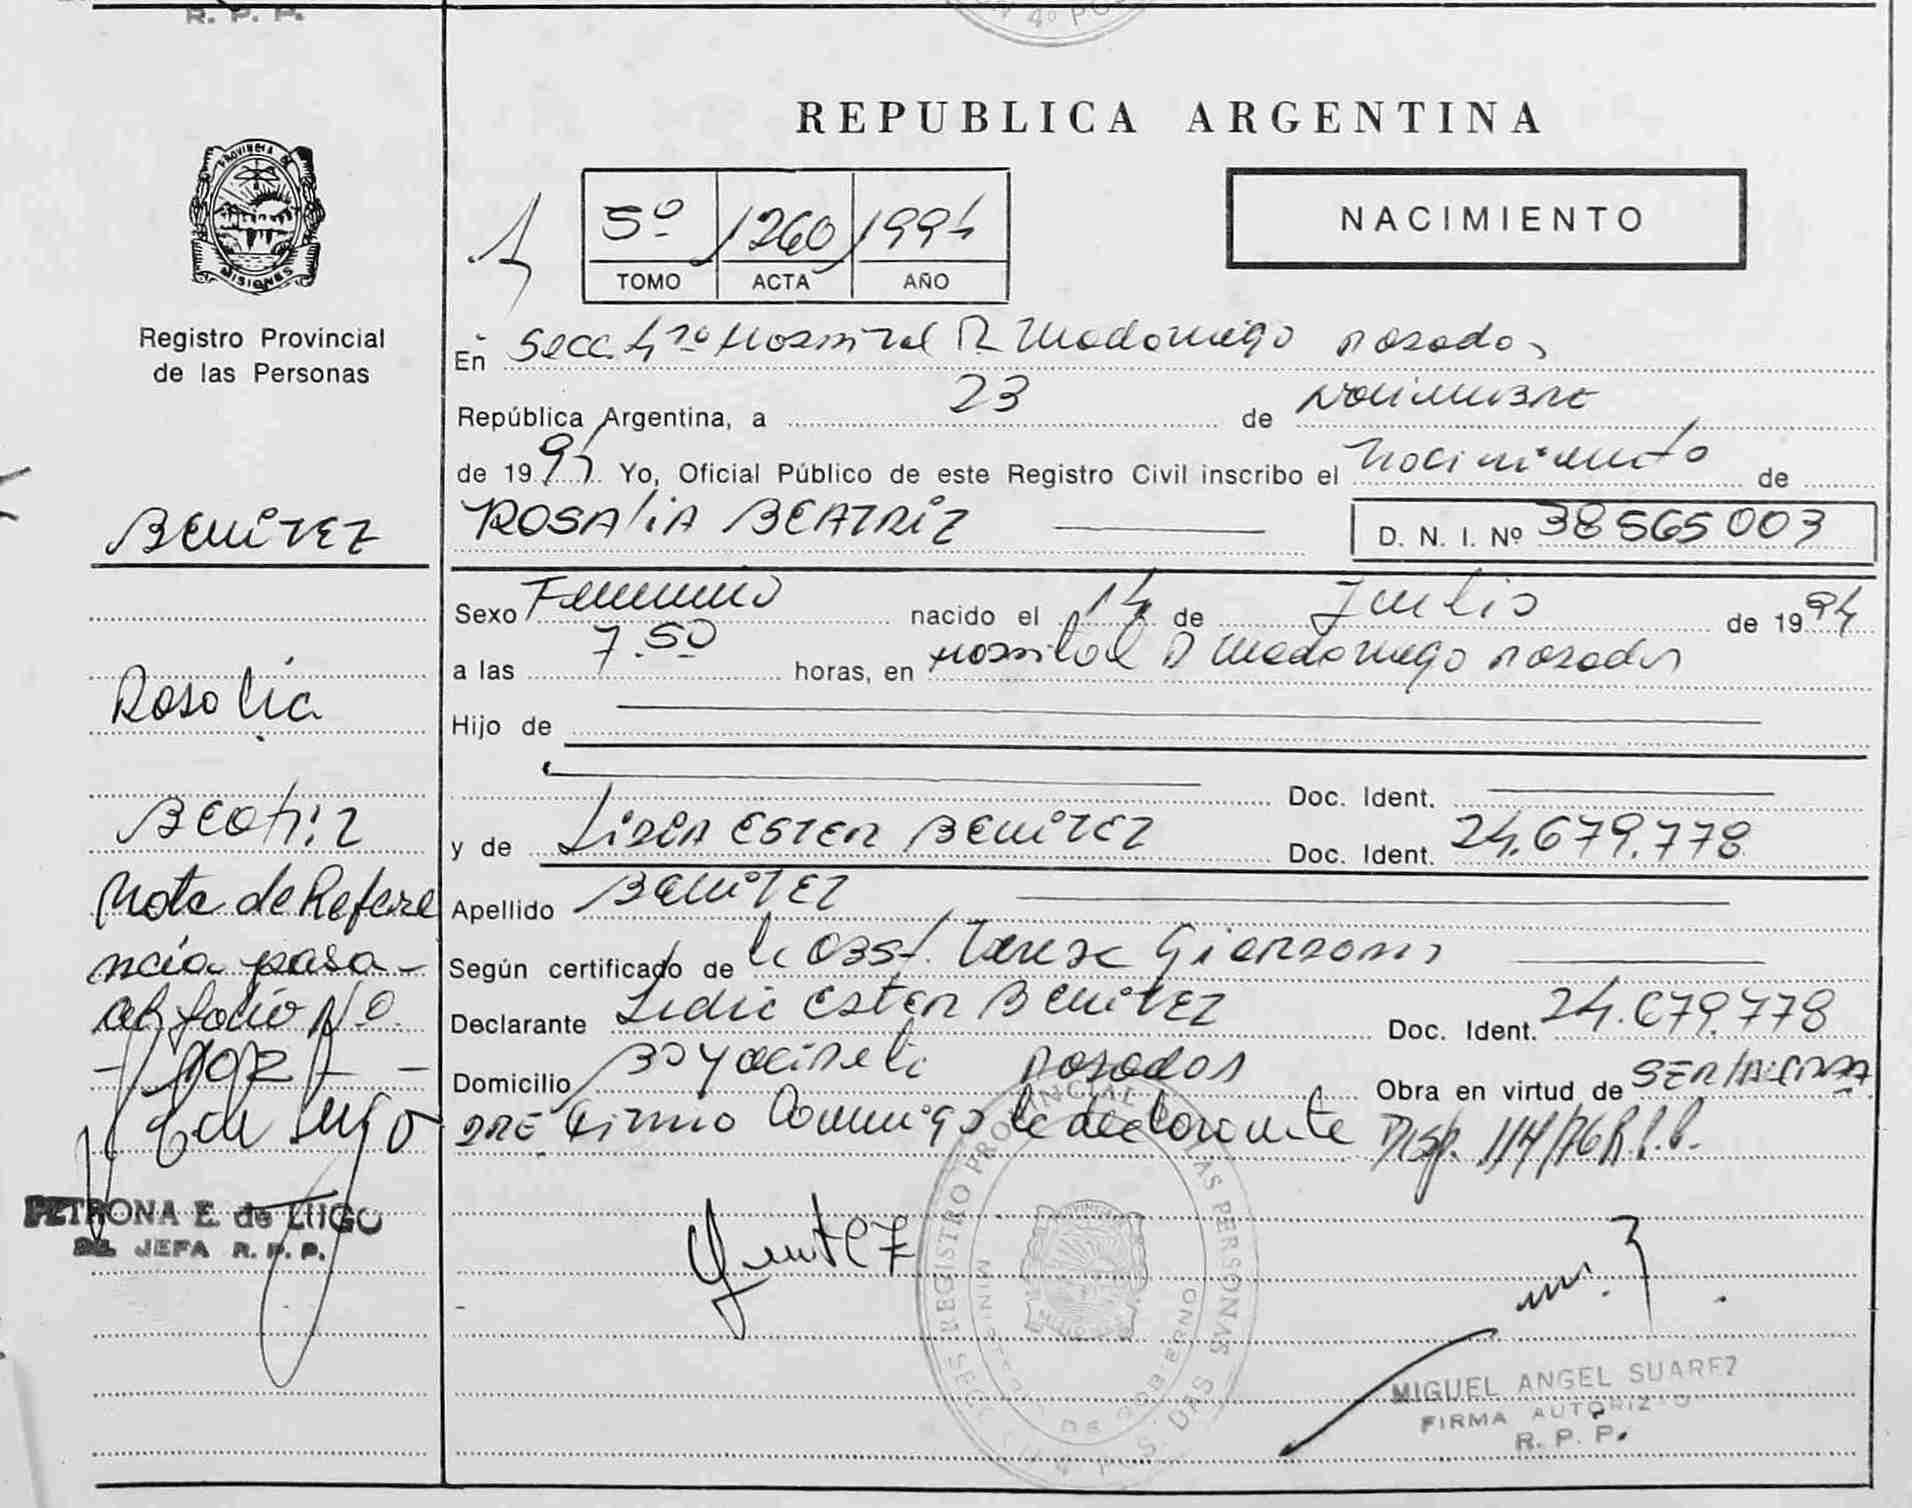 R. P. P.
4º PO
REPUBLICA ARGENTINA
PROVINCIA DE
MISIONES
Registro Provincial
de las Personas
5º 1260 1994
TOMO ACTA AÑO
NACIMIENTO
En Secc. 4ta Hospital R Madariaga Posadas
República Argentina, a 23 de Noviembre
de 1994 Yo, Oficial Público de este Registro Civil inscribo el Nacimiento de
ROSALIA BEATRIZ D. N. I. Nº 38565003
Sexo Femenino nacido el 14 de Julio de 1994
a las 7.50 horas, en Hospital R Madariaga Posadas
Hijo de
Doc. Ident.
y de LIDIA ESTER BENITEZ Doc. Ident. 24.679.778
Apellido BENITEZ
Según certificado de la Obst. Teresa
Declarante Lidia Ester BENITEZ Doc. Ident. 24.679.778
Domicilio Bº Yacireta Posadas Obra en virtud de SER
DRE Firma Conmigo la declarante Disp. 114/76 R.P.P.
BENITEZ
Rosalia
Beatriz
Nota de Refere
ncia pasa
al folio Nº
PETRONA E. de LUGO
JEFA R. P. P.
REGISTRO PROVINCIAL DE LAS PERSONAS
MINISTERIO DE GOBIERNO
MIGUEL ANGEL SUAREZ
FIRMA AUTORIZ
R. P. P.